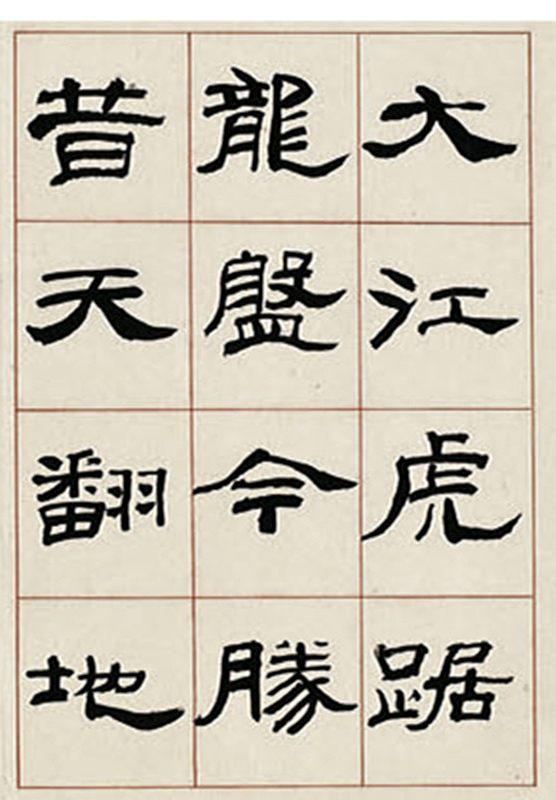 大江虎踞
龍盤今勝
昔天翻地